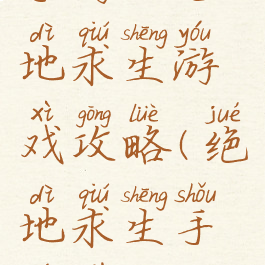 dì qiú shēng yóu
地求生游
xì gōng lüè jué
戏攻略(绝
dì qiú shēng shǒu
地求生手